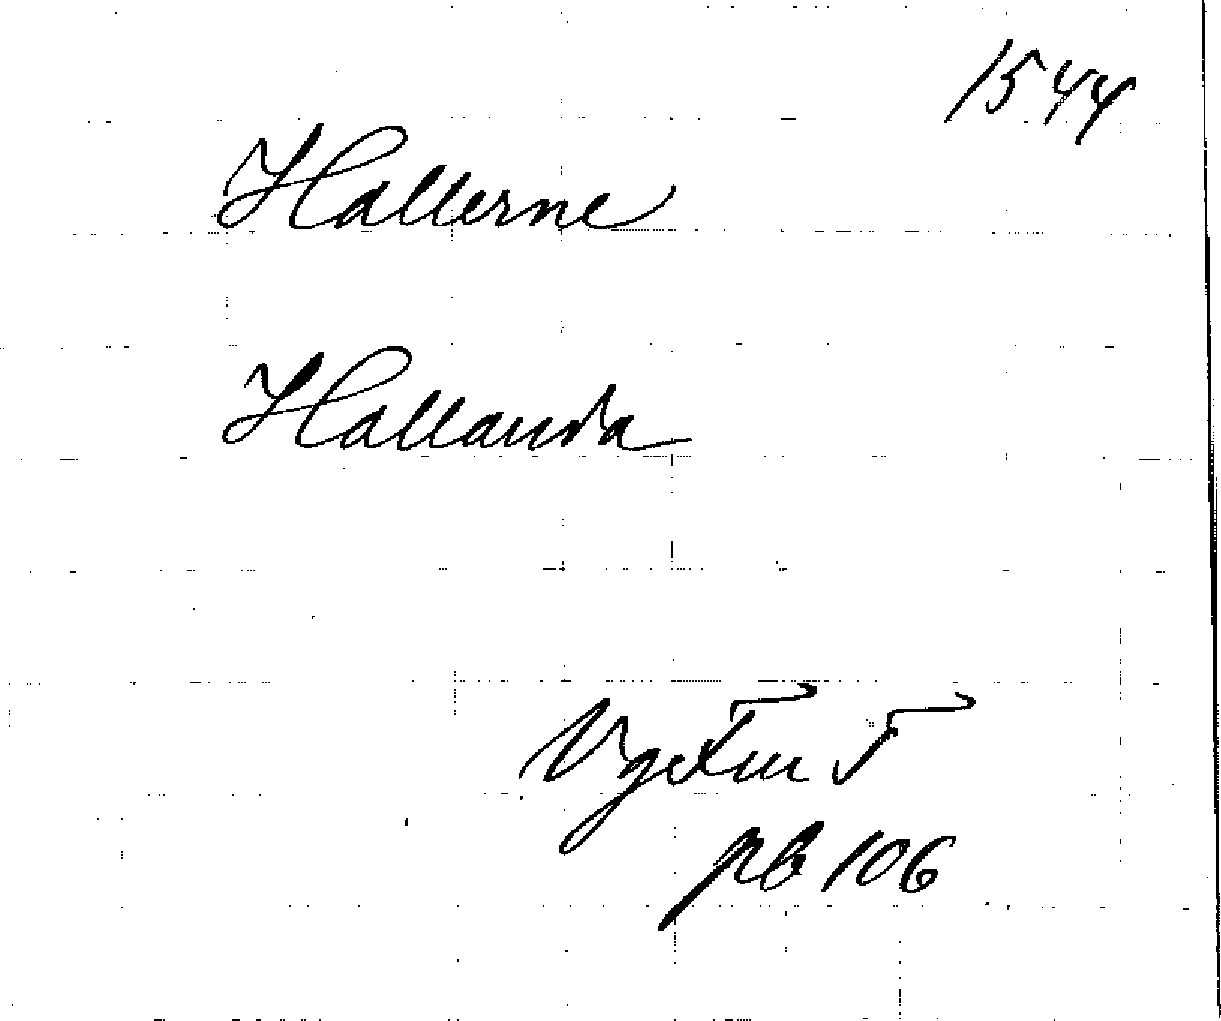 1544
Hallerne
Hallanda
pb 106